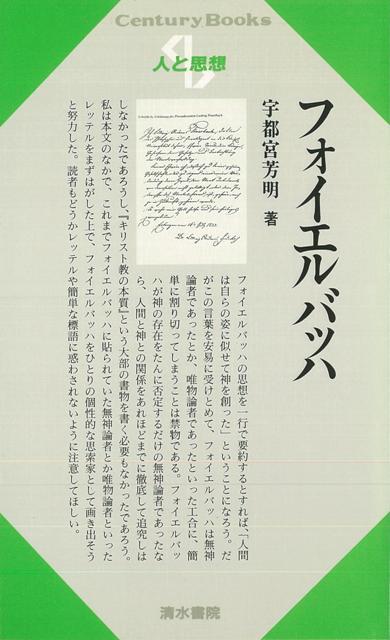 Century Books
人と思想
フォイエルバッハ
宇都宮芳明 著
フォイエルバッハの思想を一行で要約するとすれば、「人間
は自らの姿に似せて神を創った」ということになろう。だ
がこの言葉を安易に受けとめて、フォイエルバッハは無神
論者であったとか、唯物論者であったといった工合に、簡
単に割り切ってしまうことは禁物である。フォイエルバッ
ハが神の存在をたんに否定するだけの無神論者であったな
ら、人間と神との関係をあれほどまでに徹底して追究しは
しなかったであろうし、『キリスト教の本質』という大部の書物を書く必要もなかったであろう。
私は本文のなかで、これまでフォイエルバッハに貼られていた無神論者とか唯物論者といった
レッテルをまずはがした上で、フォイエルバッハをひとりの個性的な思索家として画き出そう
と努力した。読者もどうかレッテルや簡単な標語に惑わされないように注意してほしい。
清水書院